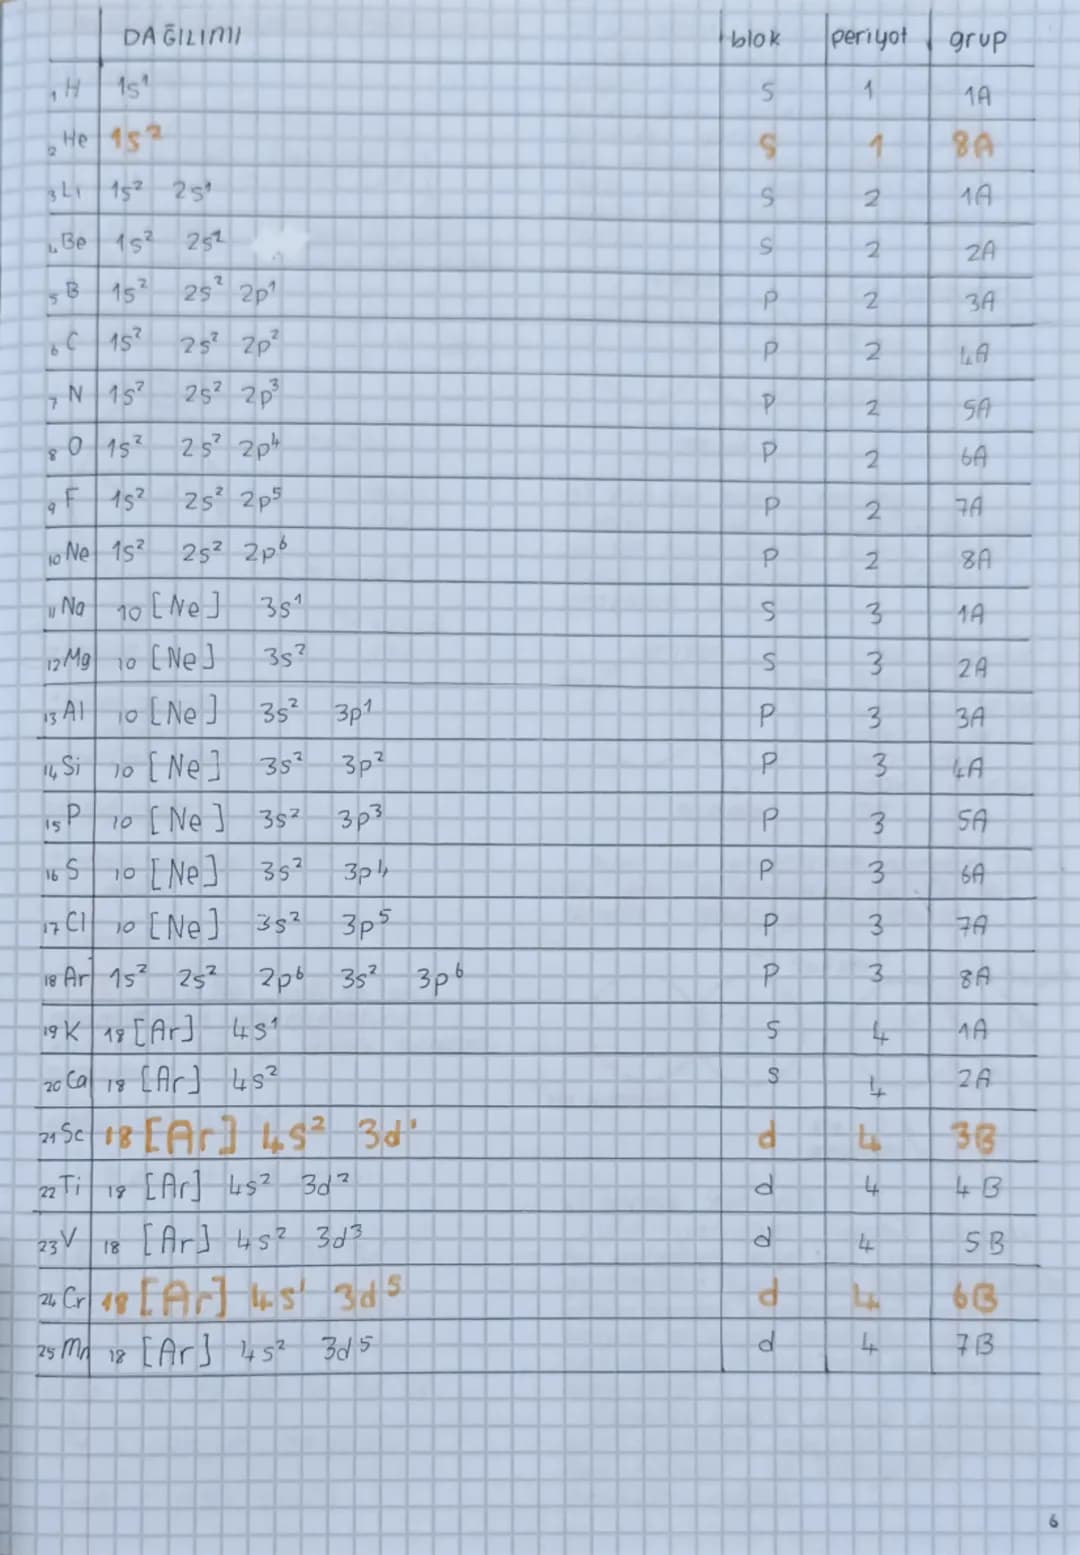 DAĞILIMI blok periyot grup
1H 1s¹ s 1 1A
2He 1s² s 1 8A
3Li 1s² 2s¹ s 2 1A
4Be 1s² 2s² s 2 2A
5B 1s² 2s² 2p¹ p 2 3A
6C 1s² 2s² 2p² p 2 4A
7N 1s² 2s² 2p³ p 2 5A
8O 1s² 2s² 2p⁴ p 2 6A
9F 1s² 2s² 2p⁵ p 2 7A
10Ne 1s² 2s² 2p⁶ p 2 8A
11Na 10[Ne] 3s¹ s 3 1A
12Mg 10[Ne] 3s² s 3 2A
13Al 10[Ne] 3s² 3p¹ p 3 3A
14Si 10[Ne] 3s² 3p² p 3 4A
15P 10[Ne] 3s² 3p³ p 3 5A
16S 10[Ne] 3s² 3p⁴ p 3 6A
17Cl 10[Ne] 3s² 3p⁵ p 3 7A
18Ar 1s² 2s² 2p⁶ 3s² 3p⁶ p 3 8A
19K 18[Ar] 4s¹ s 4 1A
20Ca 18[Ar] 4s² s 4 2A
21Sc 18[Ar] 4s² 3d¹ d 4 3B
22Ti 18[Ar] 4s² 3d² d 4 4B
23V 18[Ar] 4s² 3d³ d 4 5B
24Cr 18[Ar] 4s¹ 3d⁵ d 4 6B
25Mn 18[Ar] 4s² 3d⁵ d 4 7B
6